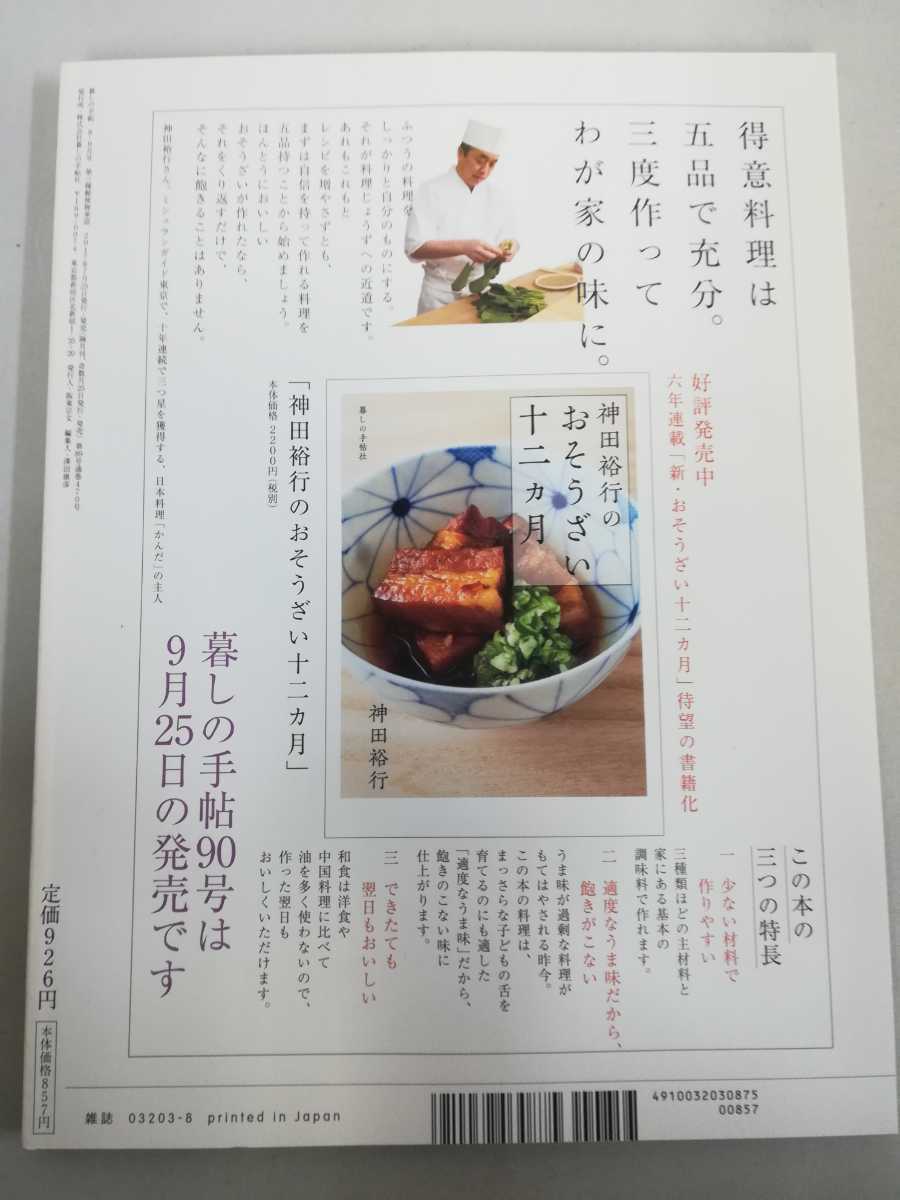 得意料理は
五品で充分。
三度作って
わが家の味に。
ふつうの料理を
しっかりと自分のものにする。
それが料理じょうずへの近道です。
あれもこれもと
レシピを増やさずとも、
まずは自信を持って作れる料理を
五品持つことから始めましょう。
ほんとうにおいしい
おそうざいが作れたなら、
それをくり返すだけで、
そんなに飽きることはありません。
神田裕行さん。ミシュランガイド東京で、十年連続で三つ星を獲得する、日本料理「かんだ」の主人
好評発売中
六年連載「新・おそうざい十二カ月」待望の書籍化
神田裕行の
おそうざい
十二ヵ月
暮しの手帖社
神田裕行
「神田裕行のおそうざい十二カ月」
本体価格 2200円(税別)
この本の
三つの特長
一 少ない材料で
作りやすい
三種類ほどの主材料と
家にある基本の
調味料で作れます。
二 適度なうま味だから、
飽きがこない
うま味が過剰な料理が
もてはやされる昨今。
この本の料理は、
まっさらな子どもの舌を
育てるのにも適した
「適度なうま味」だから、
飽きのこない味に
仕上がります。
三 できたても
翌日もおいしい
和食は洋食や
中国料理に比べて
油を多く使わないので、
作った翌日も
おいしくいただけます。
暮しの手帖90号は
9月25日の発売です
定価926円
本体価格857円
雑誌 03203-8 printed in Japan
4910032030875
00857